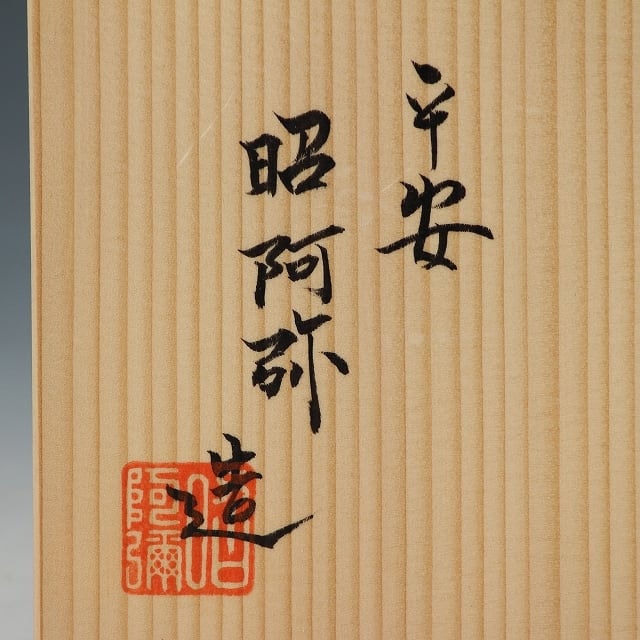 平安
昭阿弥
造
昭阿彌